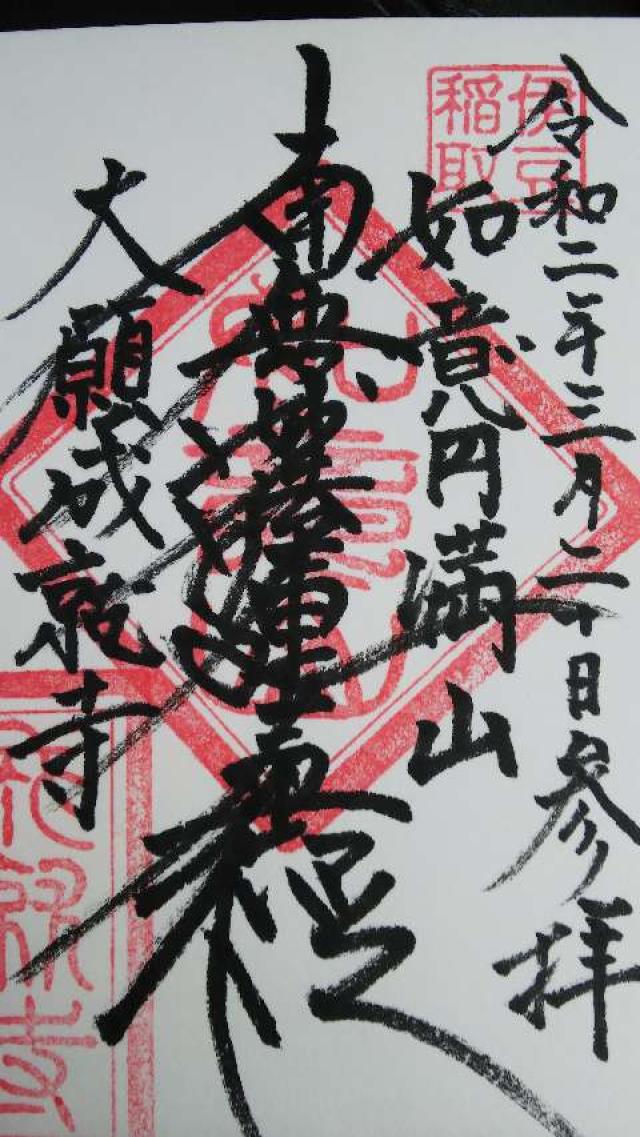 令和二年三月二十日参拝
伊豆
稲取
如意円満山
南無妙法蓮華経
大願成就寺